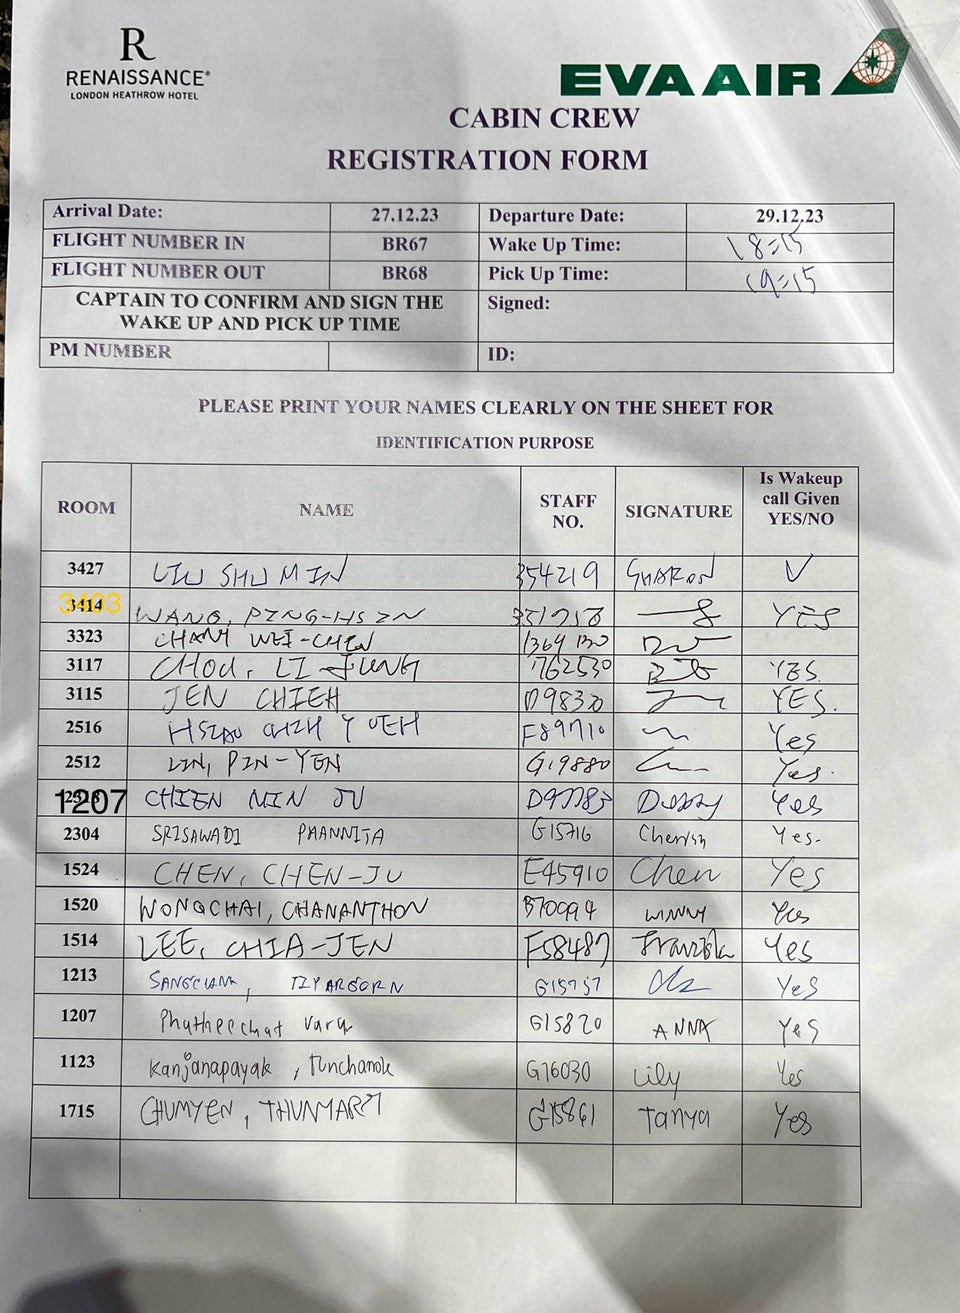 R
RENAISSANCE®
LONDON HEATHROW HOTEL
EVA AIR
CABIN CREW
REGISTRATION FORM
Arrival Date: 27.12.23 Departure Date: 29.12.23
FLIGHT NUMBER IN BR67 Wake Up Time: 18:15
FLIGHT NUMBER OUT BR68 Pick Up Time: 19:15
CAPTAIN TO CONFIRM AND SIGN THE Signed:
WAKE UP AND PICK UP TIME
PM NUMBER ID:
PLEASE PRINT YOUR NAMES CLEARLY ON THE SHEET FOR
IDENTIFICATION PURPOSE
ROOM NAME STAFF NO. SIGNATURE Is Wakeup call Given YES/NO
3427 LIU SHU MIN 354219 SHARON V
3403 3414 WANG, PING-HSIN YES
3323 WEI-CHEN
3117 CHOU, LI-JUNG 762530 YES.
3115 JEN CHIEH D9830 YES.
2516 HSIAO CHIH YUEH F89710 Yes
2512 LIN, PIN-YEN G19880 Yes.
1207 CHIEN MIN JU Yes
2304 SRISAWADI PHANNITA G15716 Cherish Yes.
1524 CHEN, CHEN-JU E45910 Chen Yes
1520 WONGCHAI, CHANANTHON WINNY Yes
1514 LEE, CHIA-JEN F58487 Yes
1213 G15757 Yes
1207 Phutheechat Varu G15820 ANNA Yes
1123 Kanjanapayak, Punchanok G16030 Lily Yes
1715 CHUMYEN, G15861 Tanya Yes